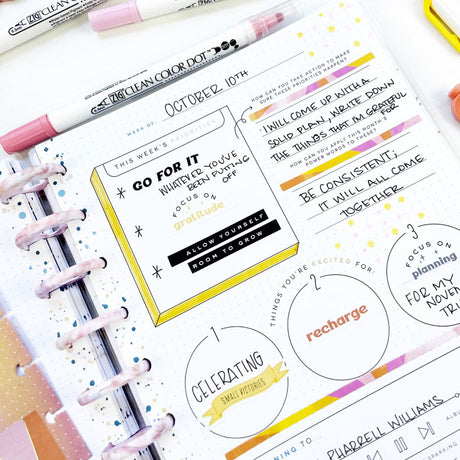 ZIG CLEAN COLOR DOT
WEEK OF:
OCTOBER 10TH
THIS WEEK'S PRIORITIES
GO FOR IT
WHATEVER YOU'VE
BEEN PUTTING
OFF
FOCUS
ON
gratitude
ALLOW YOURSELF
ROOM TO GROW
HOW CAN YOU TAKE ACTION TO MAKE
SURE THESE PRIORITIES HAPPEN?
I WILL COME UP WITH A
SOLID PLAN, WRITE DOWN
THE THINGS THAT I'M GRATEFUL
FOR
HOW CAN YOU APPLY THIS MONTH'S
POWER WORDS TO THESE?
BE CONSISTENT;
IT WILL ALL COME
TOGETHER
THINGS YOU'RE EXCITED FOR:
1
CELEBRATING
SMALL VICTORIES
2
recharge
3
FOCUS ON
planning
FOR MY
TO...
PHARRELL WILLIAMS